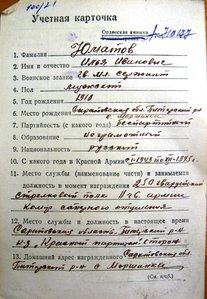 100/21
Учетная карточка
Орденская книжка
1. Фамилия Юматов
2. Имя и отчество Иванович
3. Воинское звание гв. мл. сержант
4. Пол мужской
5. Год рождения 1910
6. Место рождения Саратовская обл.
7. Партийность (с какого года) беспартийный
8. Образование
9. Национальность русский
10. С какого года в Красной Армии с 1943 по 1945 г.
11. Место службы (наименование части) и занимаемая
должность в момент награждения 250 гвардейский
стрелковый полк армии
отделения
12. Место службы и должность в настоящее время
Саратовская область, р-н
"Красный партизан"
13. Домашний адрес награжденного Саратовская обл.
р-н с.
(См. на об.)